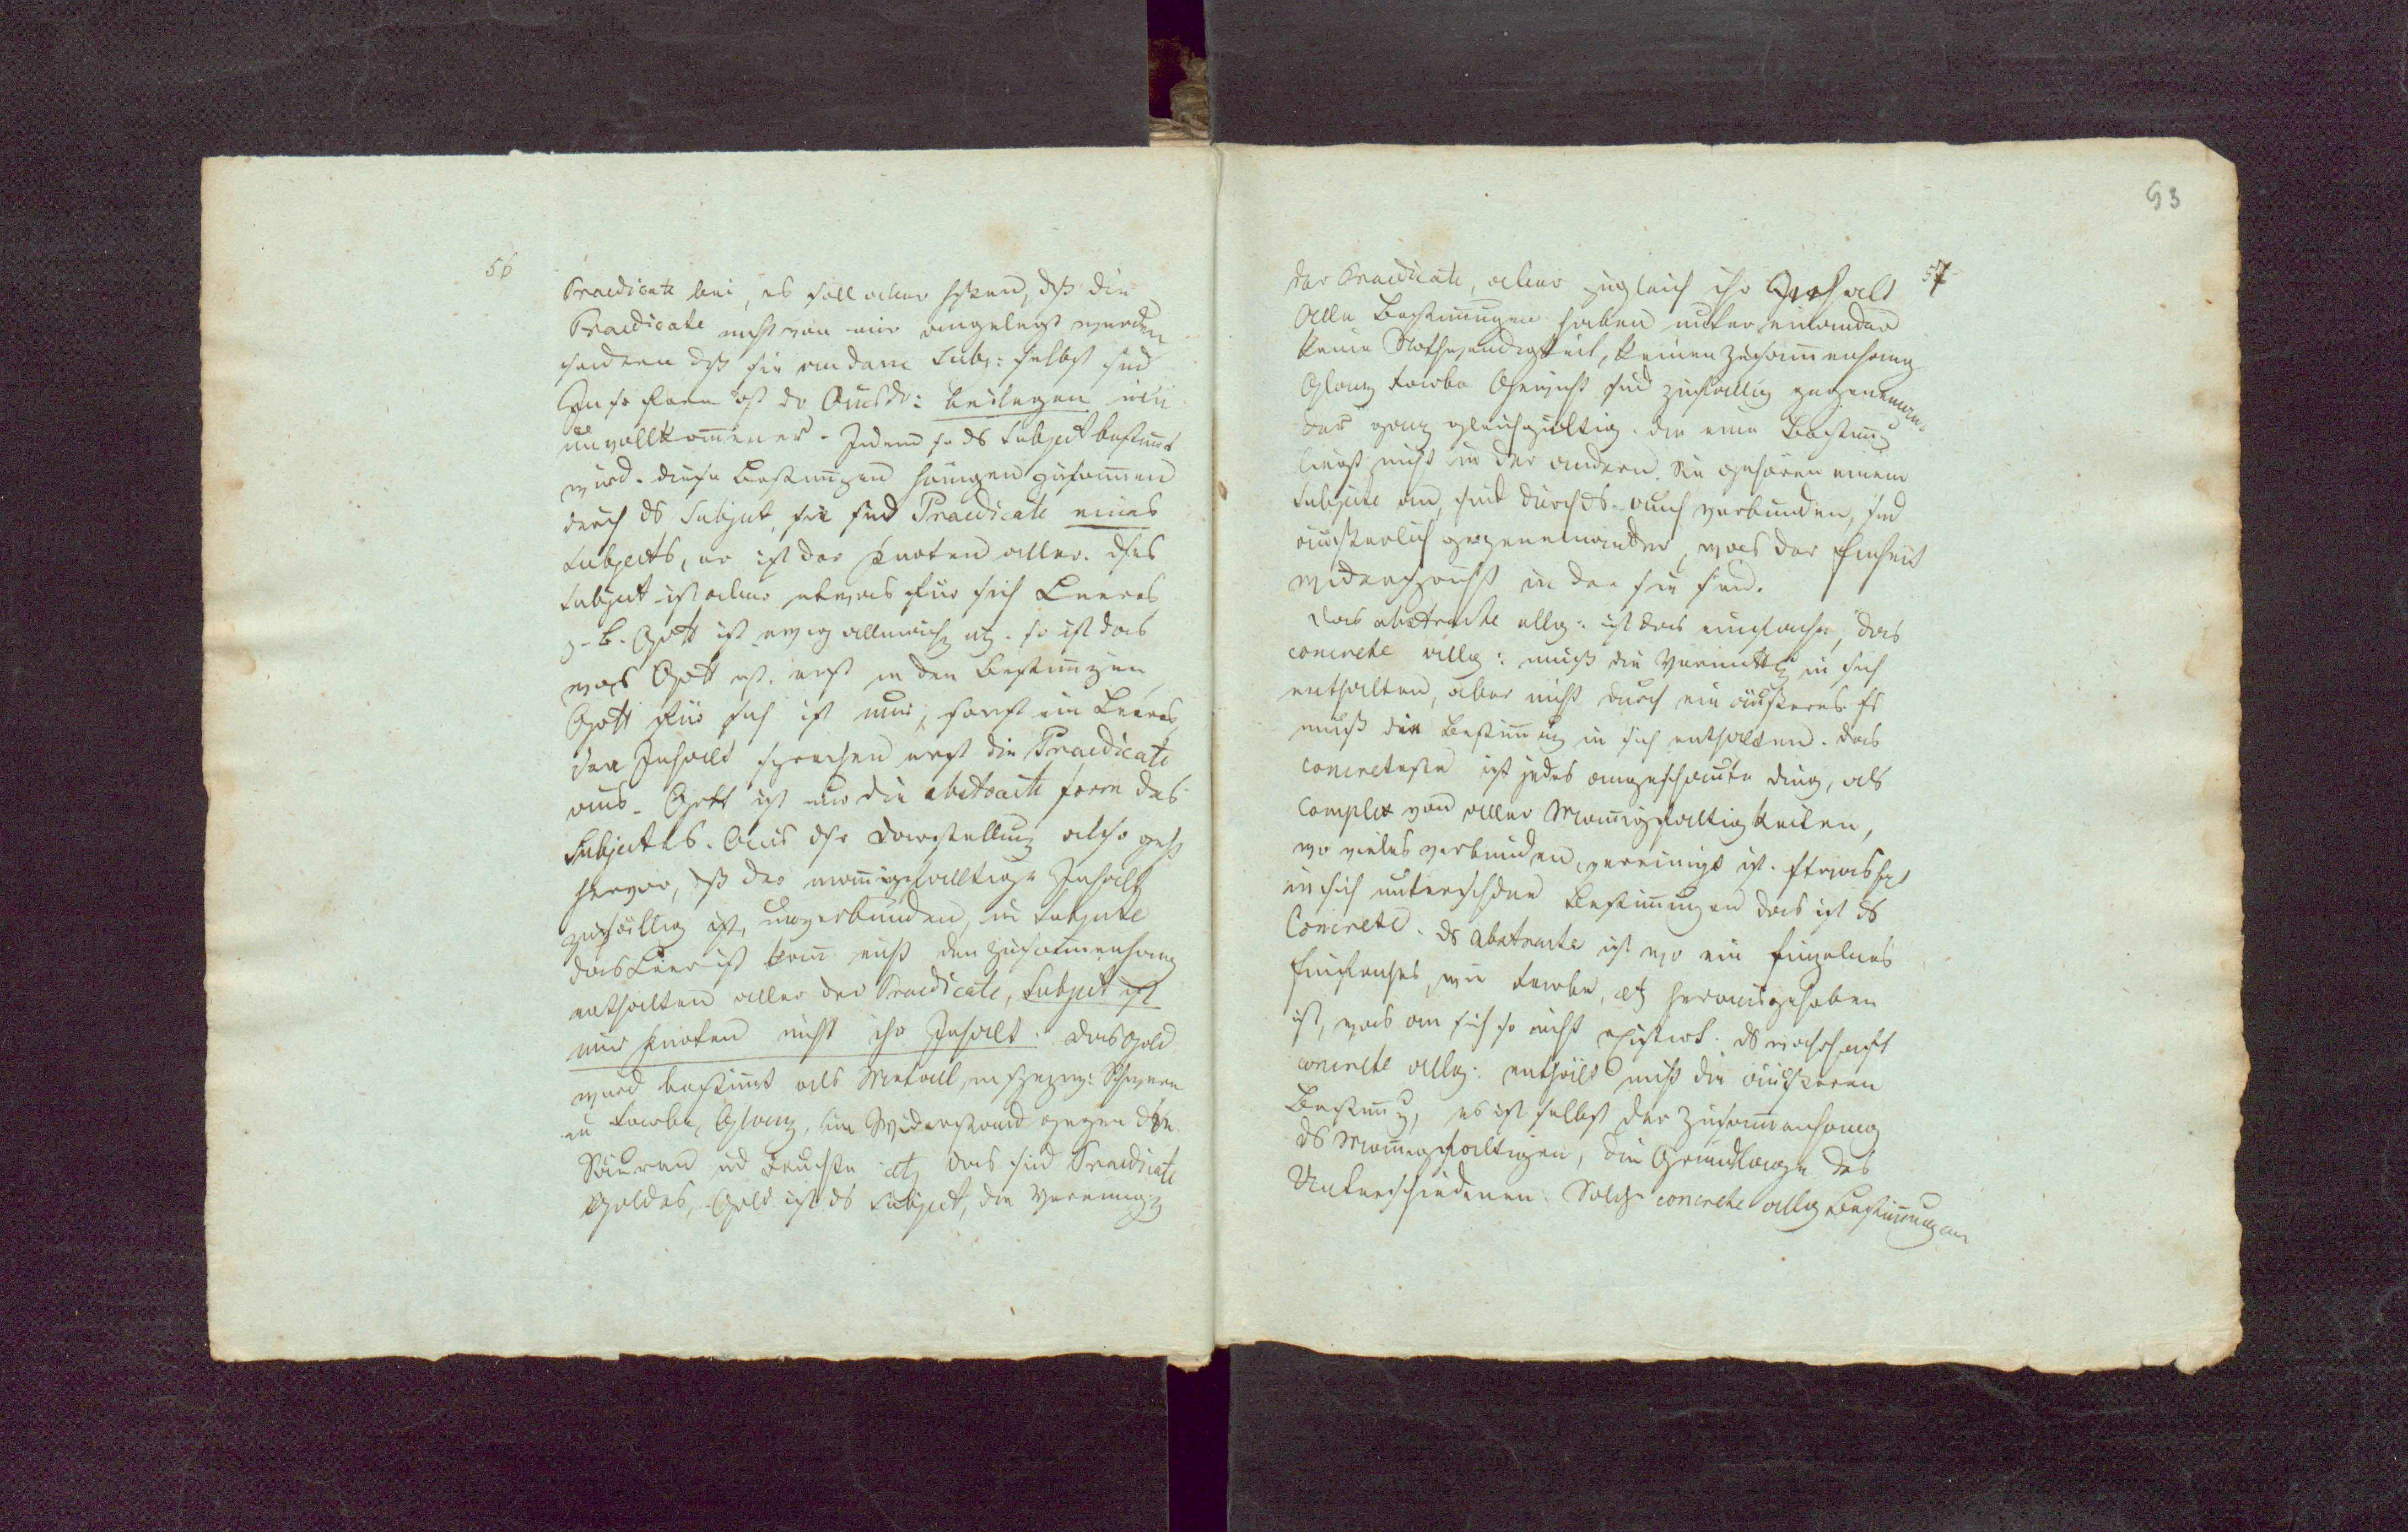 56
Praedicate bei, es soll aber heißen, dß die
Praedicate nicht von mir angelegt werden
sondern dß sie an dem Subj: selbst sind
In so fern ist dr Ausdr: beilegen ein
unvollkommener. Indem so ds Subject bestimt
wird. diese Bestimgen hängen zusammen
durch ds Subject, sie sind Praedicate eines
Subjects, er ist der Knoten aller. dses
Subject ist aber etwas für sich Leeres
z. B. Gott ist ewig allmächtg etz. so ist das
was Gott ist, erst in den Bestimgen,
Gott für sich ist nur, sonst ein Leeres,
den Inhalt sprechen erst die Praedicate
aus. Gott ist nur die abstracte form des
Subjectes. Aus dsr Darstellung also geht
hervor, dß der mannigfalltige Inhalt
zufällig ist, unverbunden, im Subjecte
das Leer ist kann nicht den Zusammenhang
enthalten aller der Praedicate, Subject ist
nur Knoten nicht ihr Inhalt. das Gold
wird bestimt als Metall, in Schwere
in Farbe, Glanz, im Widerstand gegen die
Säuren ud Feuchte etz das sind Praedicate
Goldes, Gold ist ds Subject, die Vereinigg
93
57
der Praedicate, aber zugleich ihr Inhalt
Alle Bestimungen haben unter einander
keine Nothwendigkeit, keinen Zusammenhang
Glanz Farbe Gewicht sind zufällig gegen einan
der ganz gleichgültig. die eine Bestimg
liegt nicht in der andern. Sie gehören einem
Subjecte an, sind durch ds. auch verbunden, sind
äußerlich gegeneinander, was der Einheit
widerspricht in der sie sind.
Das abstracte allg: ist das einfache, das
concrete allg: muß die Vermittlg in sich
enthalten, aber nicht durch ein äußeres. Es
muß die Bestimung in sich enthalten. das
concreteste ist jedes angeschaute ding, als
Complex von aller Mannigfaltigkeiten,
wo vieles verbunden, vereinigt ist. Etwas hat
in sich unterschdne Bestimmungen das ist ds
Concrete. ds abstracte ist wo ein Einzelnes
Einfaches, wie Farbe, etz herausgehoben
ist, was an sich so nicht existirt. ds wahrhaft
concrete allg: enthält nicht die äußeren
Bestimg, es ist selbst der Zusammenhang
ds Mannigfaltigen, die Grundlage des
Unterschiedenen. Solche concrete allg Bestimmungen